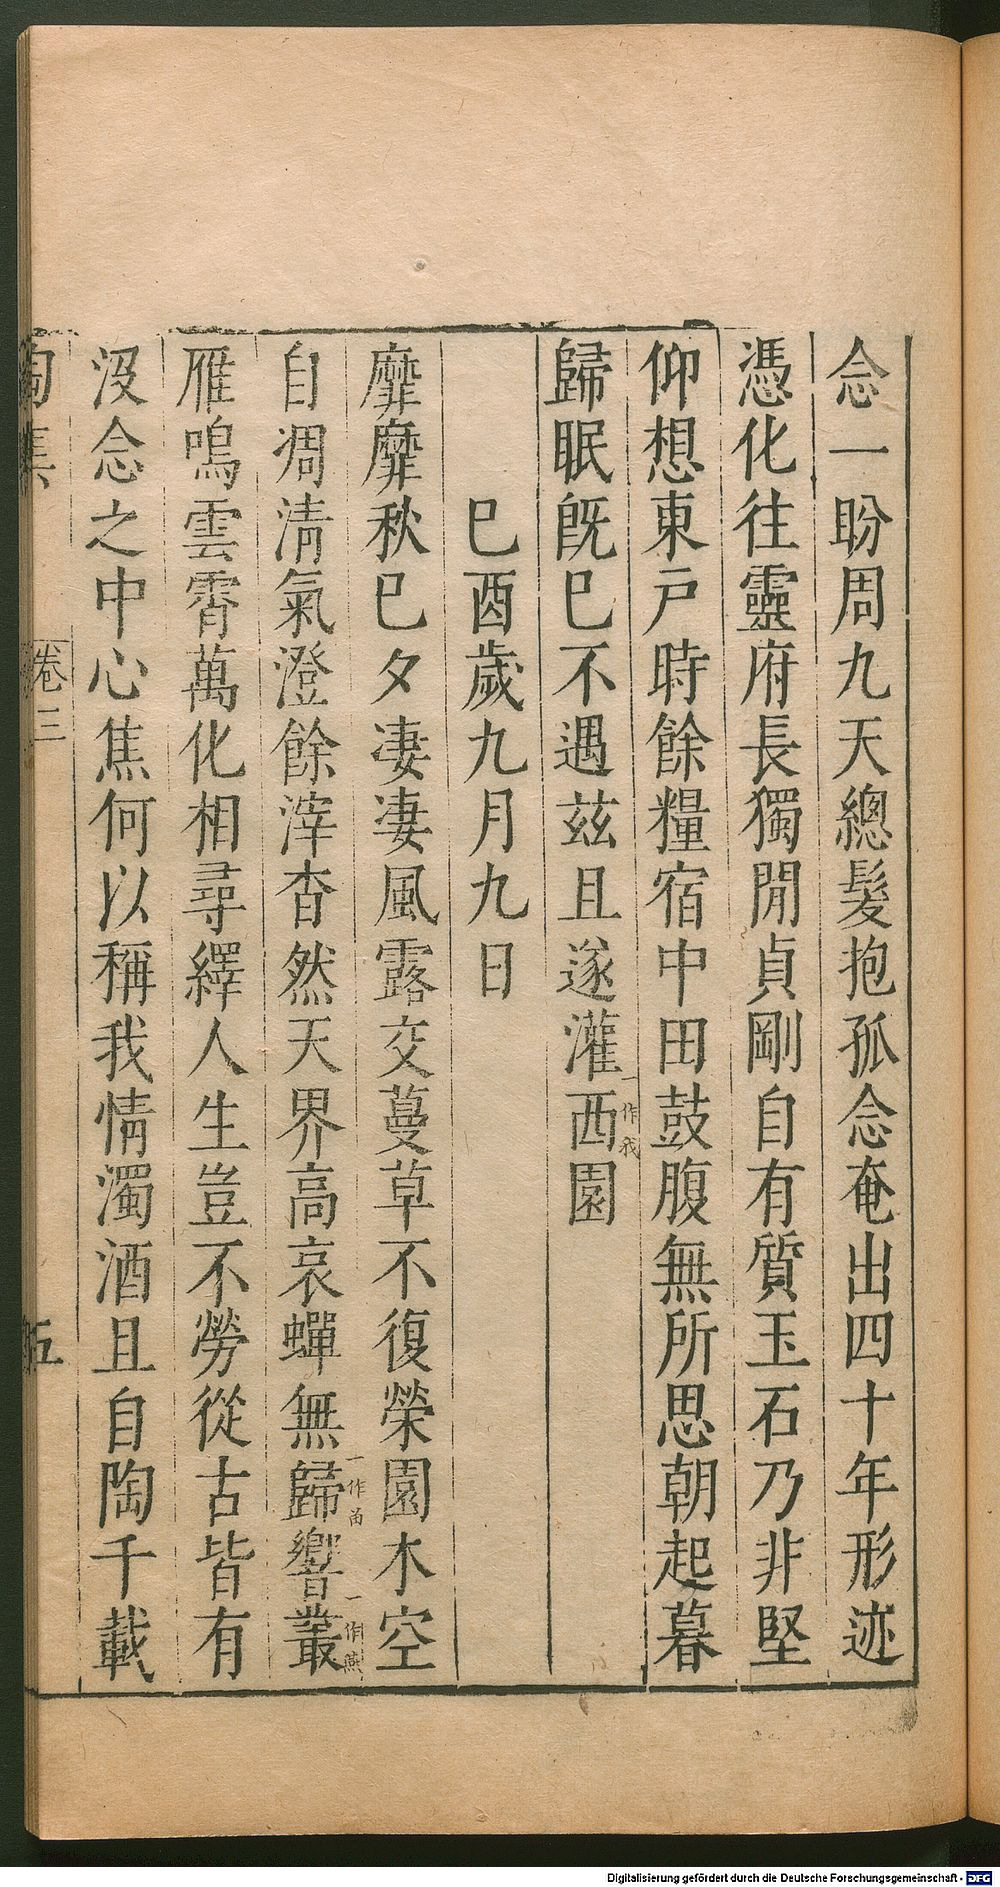 念一盼周九天總髮抱孤念奄出四十年形迹
憑化往靈府長獨閒貞剛自有質玉石乃非堅
仰想東戸時餘糧宿中田鼓腹無所思朝起暮
歸眠旣巳不遇茲且遂灌西園
一作我
巳酉歲九月九日
靡靡秋巳夕淒淒風露交蔓草不復榮園木空
自凋清氣澄餘滓杳然天界高哀蟬無歸響叢
一作畱
一作燕
雁鳴雲霄萬化相尋繹人生豈不勞從古皆有
沒念之中心焦何以稱我情濁酒且自陶千載
陶集
卷三
五
Digitalisierung gefördert durch die Deutsche Forschungsgemeinschaft - DFG